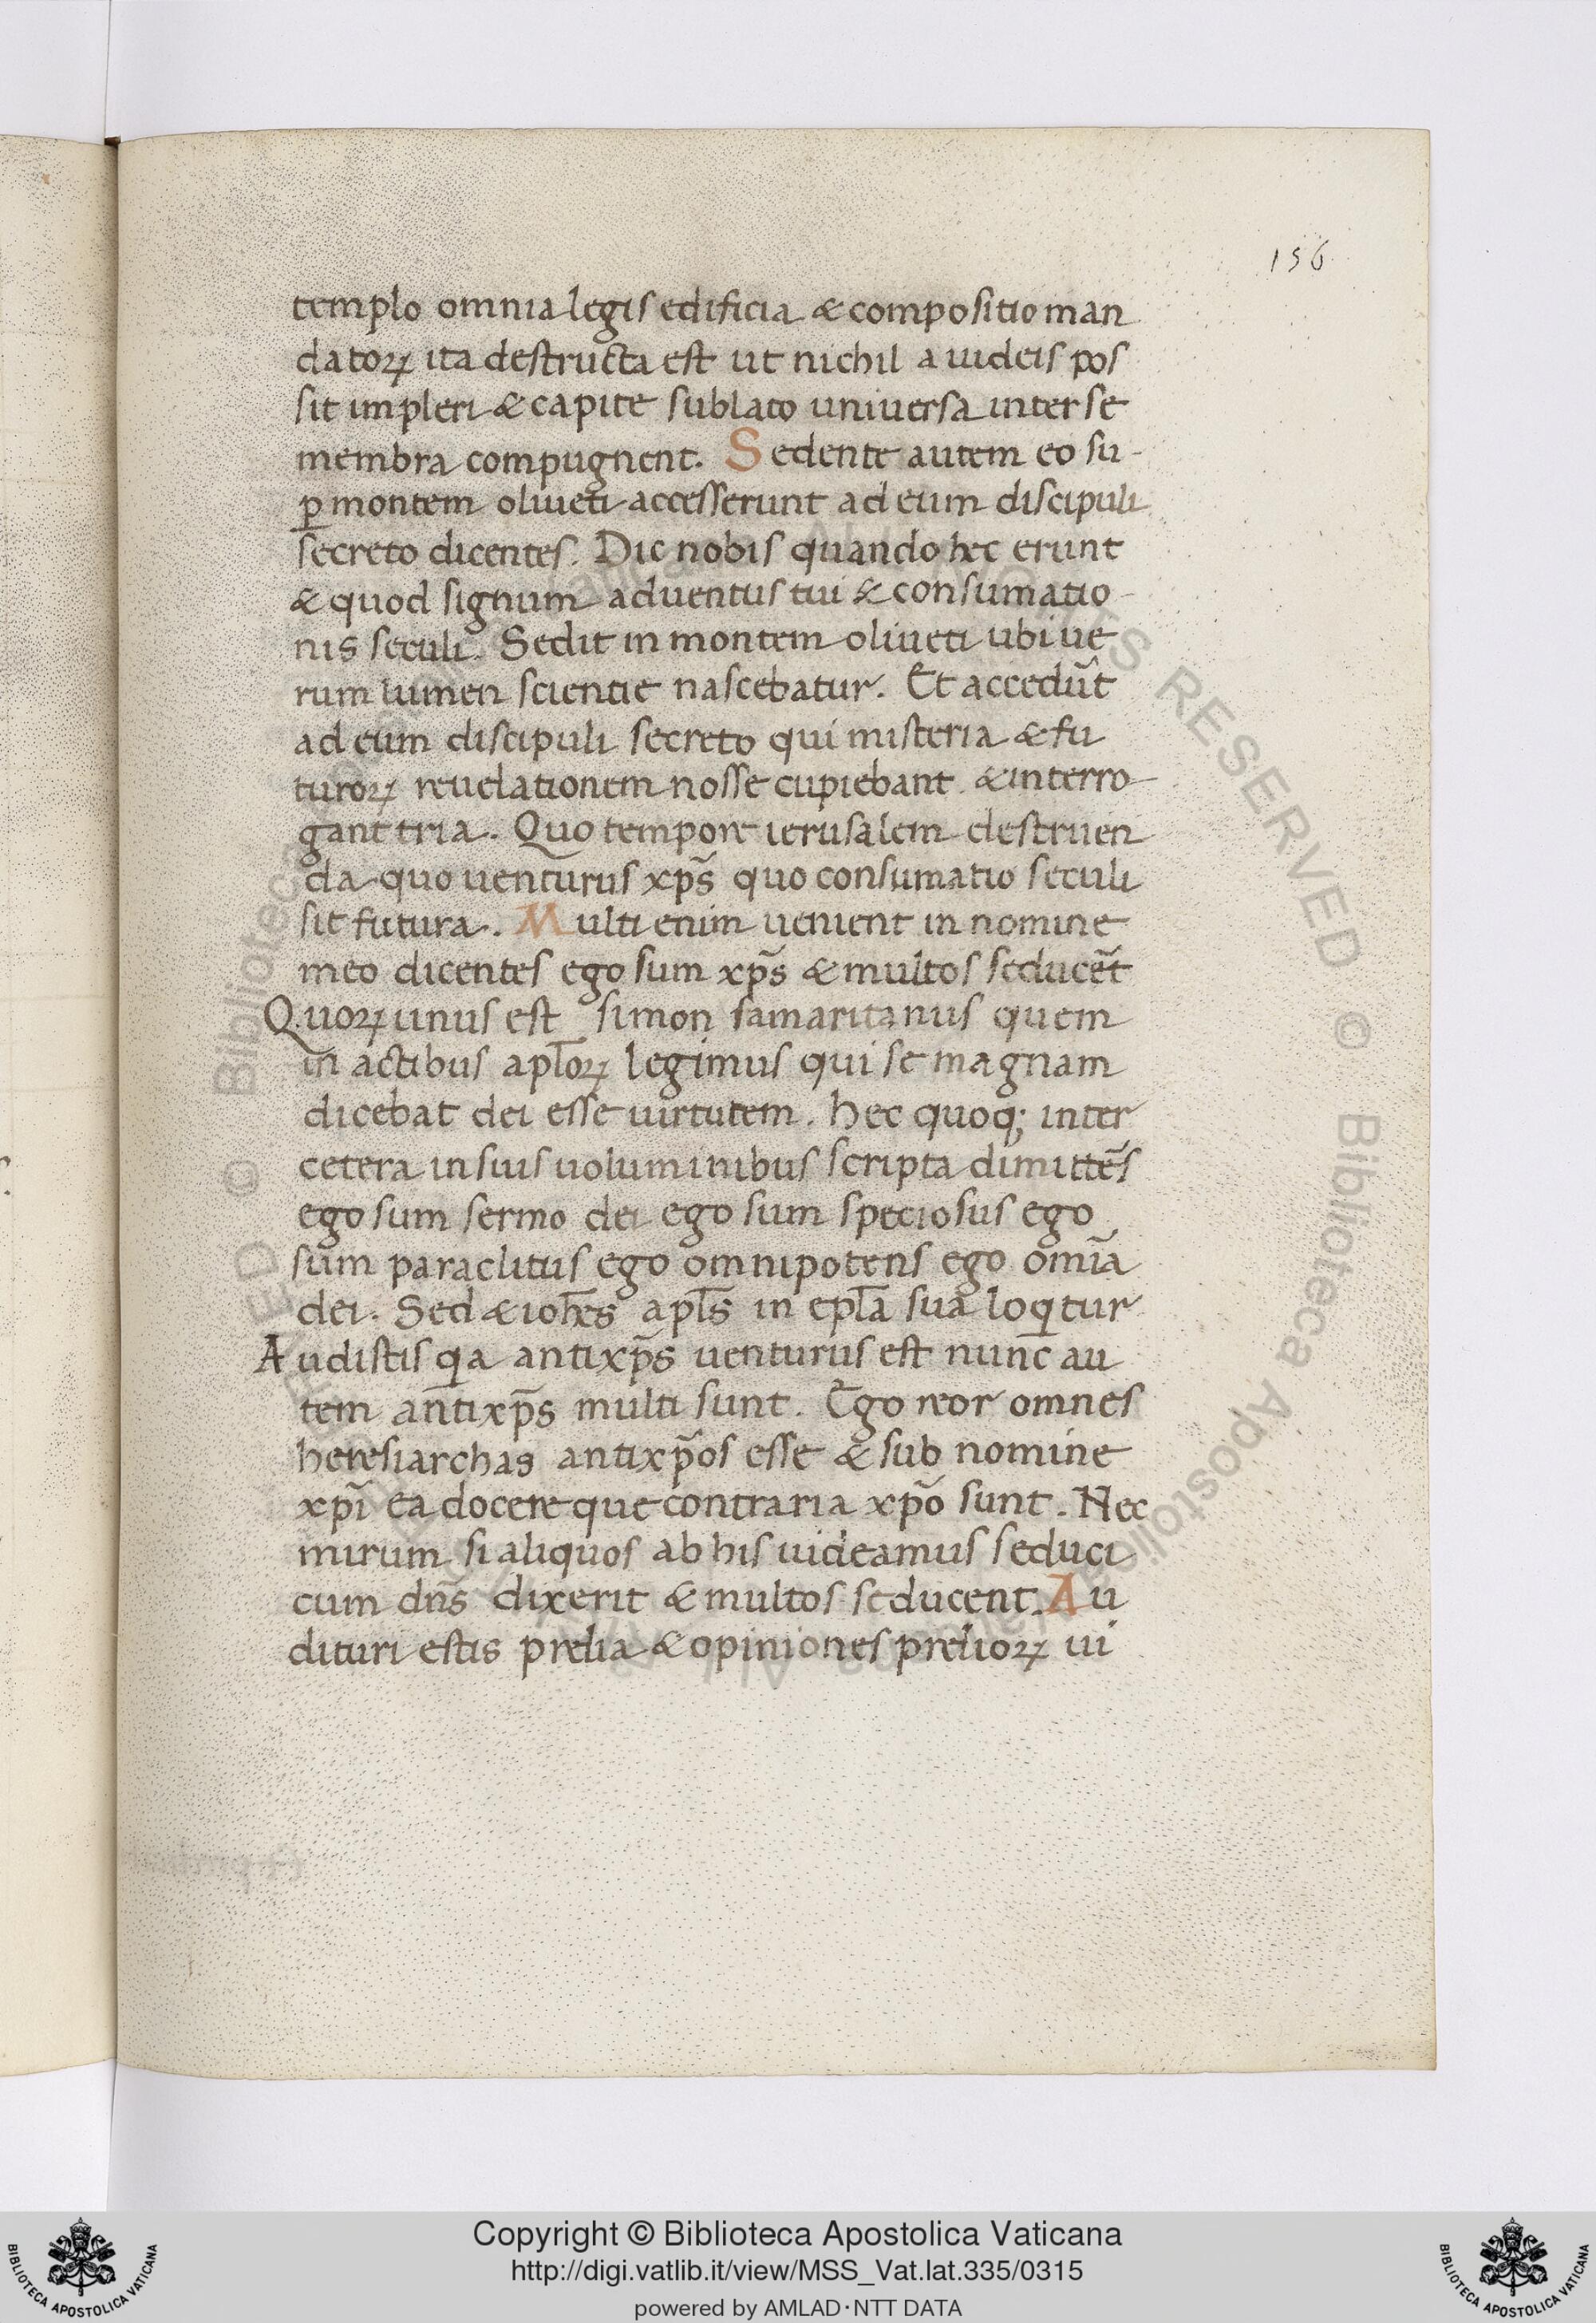 156
templo omnia legis edificia & compositio man
datoꝝ ita destructa est ut nichil a iudeis pos
sit impleri & capite sublato universa inter se
membra compugnent. Sedente autem eo su-
ꝑ montem oliueti accesserunt ad eum discipuli
secreto dicentes. Dic nobis quando hec erunt
& quod signum aduentus tui & consumatio-
nis seculi. Sedit in montem oliueti ubi ue
rum lumen scientie nascebatur. Et accedūt
ad eum discipuli secreto qui misteria & fu
turoꝝ reuelationem nosse cupiebant & interro-
gant tria. Quo tempore ierusalem destruen
da quo uenturus xp̄s quo consumatio seculi
sit futura. Multi enim uenient in nomine
meo dicentes ego sum xp̄s & multos seducēt
Quoꝝ unus est simon samaritanus quem
in actibus apl̄oꝝ legimus qui se magnam
dicebat dei esse uirtutem. hec quoq; inter
cetera in suis uoluminibus scripta dimittēs
ego sum sermo dei ego sum speciosus ego
sum paraclitus ego omnipotens ego om̄ia
dei. Sed & ioh̄es apl̄s in epl̄a sua loqͥtur
Audistis qͥa antixp̄s uenturus est nunc au
tem antixp̄s multi sunt. Ego reor omnes
heresiarchas antixp̄os esse & sub nomine
xp̄i ea docere que contraria xp̄o sunt. Nec
mirum si aliquos ab his uideamus seduci
cum dn̄s dixerit & multos seducent. Au
dituri estis prelia & opiniones prelioꝝ ui
Copyright © Biblioteca Apostolica Vaticana
http://digi.vatlib.it/view/MSS_Vat.lat.335/0315
powered by AMLAD·NTT DATA
BIBLIOTECA APOSTOLICA VATICANA
BIBLIOTECA APOSTOLICA VATICANA